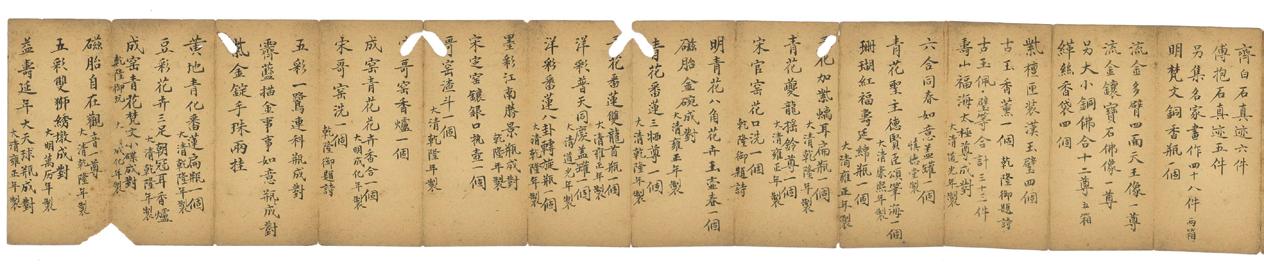 齊白石真迹六件
傅抱石真迹五件
另集名家書作四十八件 兩箱
明梵文銅香瓶一個
流金多臂四面天王像一尊
流金鑲寶石佛像一尊
另大小銅佛合十二尊 五箱
緙絲香袋四個
紫檀匣裝漢玉璧四個
古玉香薰一個 乾隆御題詩
古玉佩璧等合計三十三件
壽山福海太極尊成對 大清道光年製
六合同春如意蓋罐一個 慎德堂製
青花聖主德賢臣頌筆海一個 大清康熙年製
珊瑚紅福壽延綿瓶一個 大清雍正年製
花加紫螭耳扁瓶一個 大清乾隆年製
青花夔龍搖鈴尊一個 大清雍正年製
宋官窑花口洗一個 乾隆御題詩
明青花八角花卉玉壺春一個
磁胎金碗成對 大清雍正年製
青花番蓮三牺尊一個 大清乾隆年製
花番蓮雙龍首瓶一個 大清雍正年製
洋彩普天同慶蓋罐一個 大清道光年製
洋彩番蓮八卦轉旋瓶一個 大清乾隆年製
墨彩江南勝景瓶成對 大清乾隆年製
宋定窑鑲銀口執壺一個
哥窑渣斗一個 大清乾隆年製
哥窑香爐一個
成窑青花花卉香合一個 大明成化年製
宋哥窑洗一個 乾隆御題詩
五彩一鷺連科瓶成對
霽藍描金事事如意瓶成對
紫金錠手珠兩挂
黄地青花番蓮扁瓶一個 大清乾隆年製
豆彩花卉三足朝冠耳香爐 大清乾隆年製
成窑青花梵文小碟成對 大明成化年製
乾隆御玩
磁胎自在觀音一尊 大清乾隆年製
五彩雙獅綉墩成對 大明萬曆年製
益壽延年大天球瓶成對 大清雍正年製